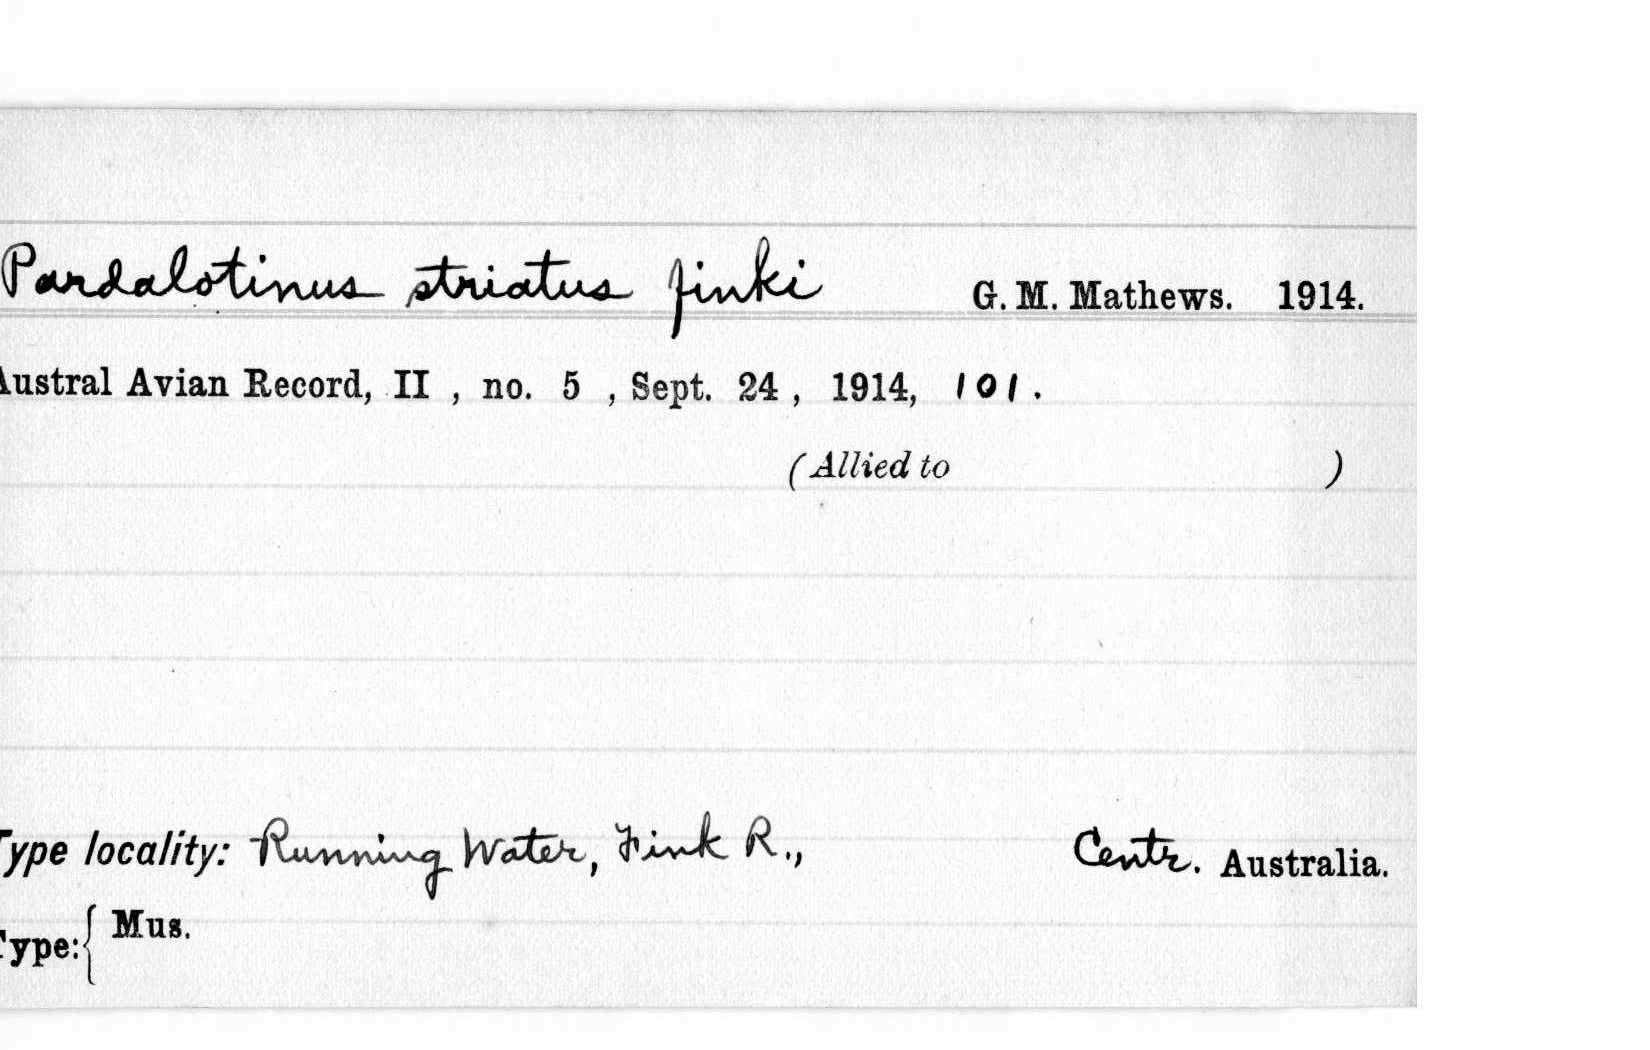 Pardalotinus striatus finki G. M. Mathews. 1914.
Austral Avian Record, II , no. 5 , Sept. 24 , 1914, 101.
(Allied to )
Type locality: Running Water, Fink R., Centr. Australia.
Type: { Mus.